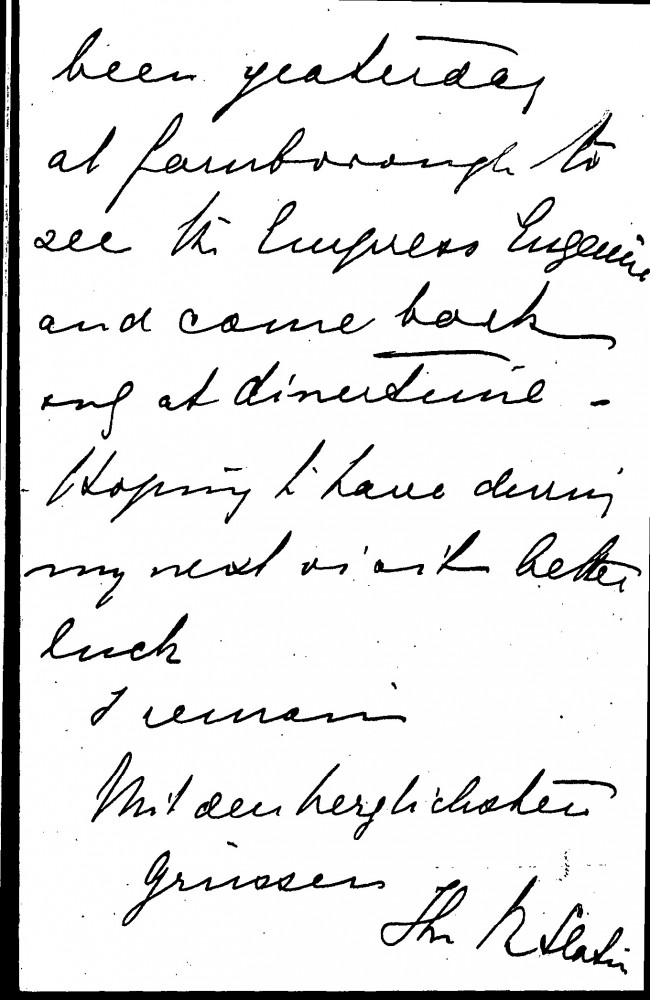 been yesterday
at Farnborough to
see the Empress Eugenie
and came back
only at dinertime -
Hoping to have during
my next visit better
luck
I remain
Mit den herzlichsten
Grüssen
Ihr R Slatin